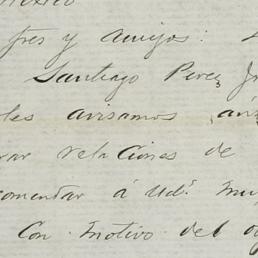 México
fres y amigos:
Santiago Perez Jr
les avisamos
rar relaciones de
comendar á Uds. muy
Con motivo del